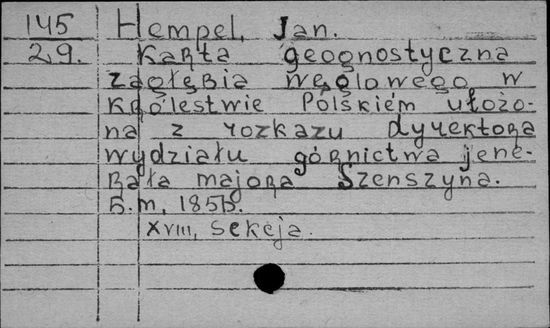 145
29.
Hempel, Jan.
Karta geognostyczna
zagłębia węglowego w
Królestwie Polskiém ułożo-
na z rozkazu dyrektora
wydziału górnictwa jene-
rała majora Szenszyna.
B.m, 1856.
XVIII, sekcja.